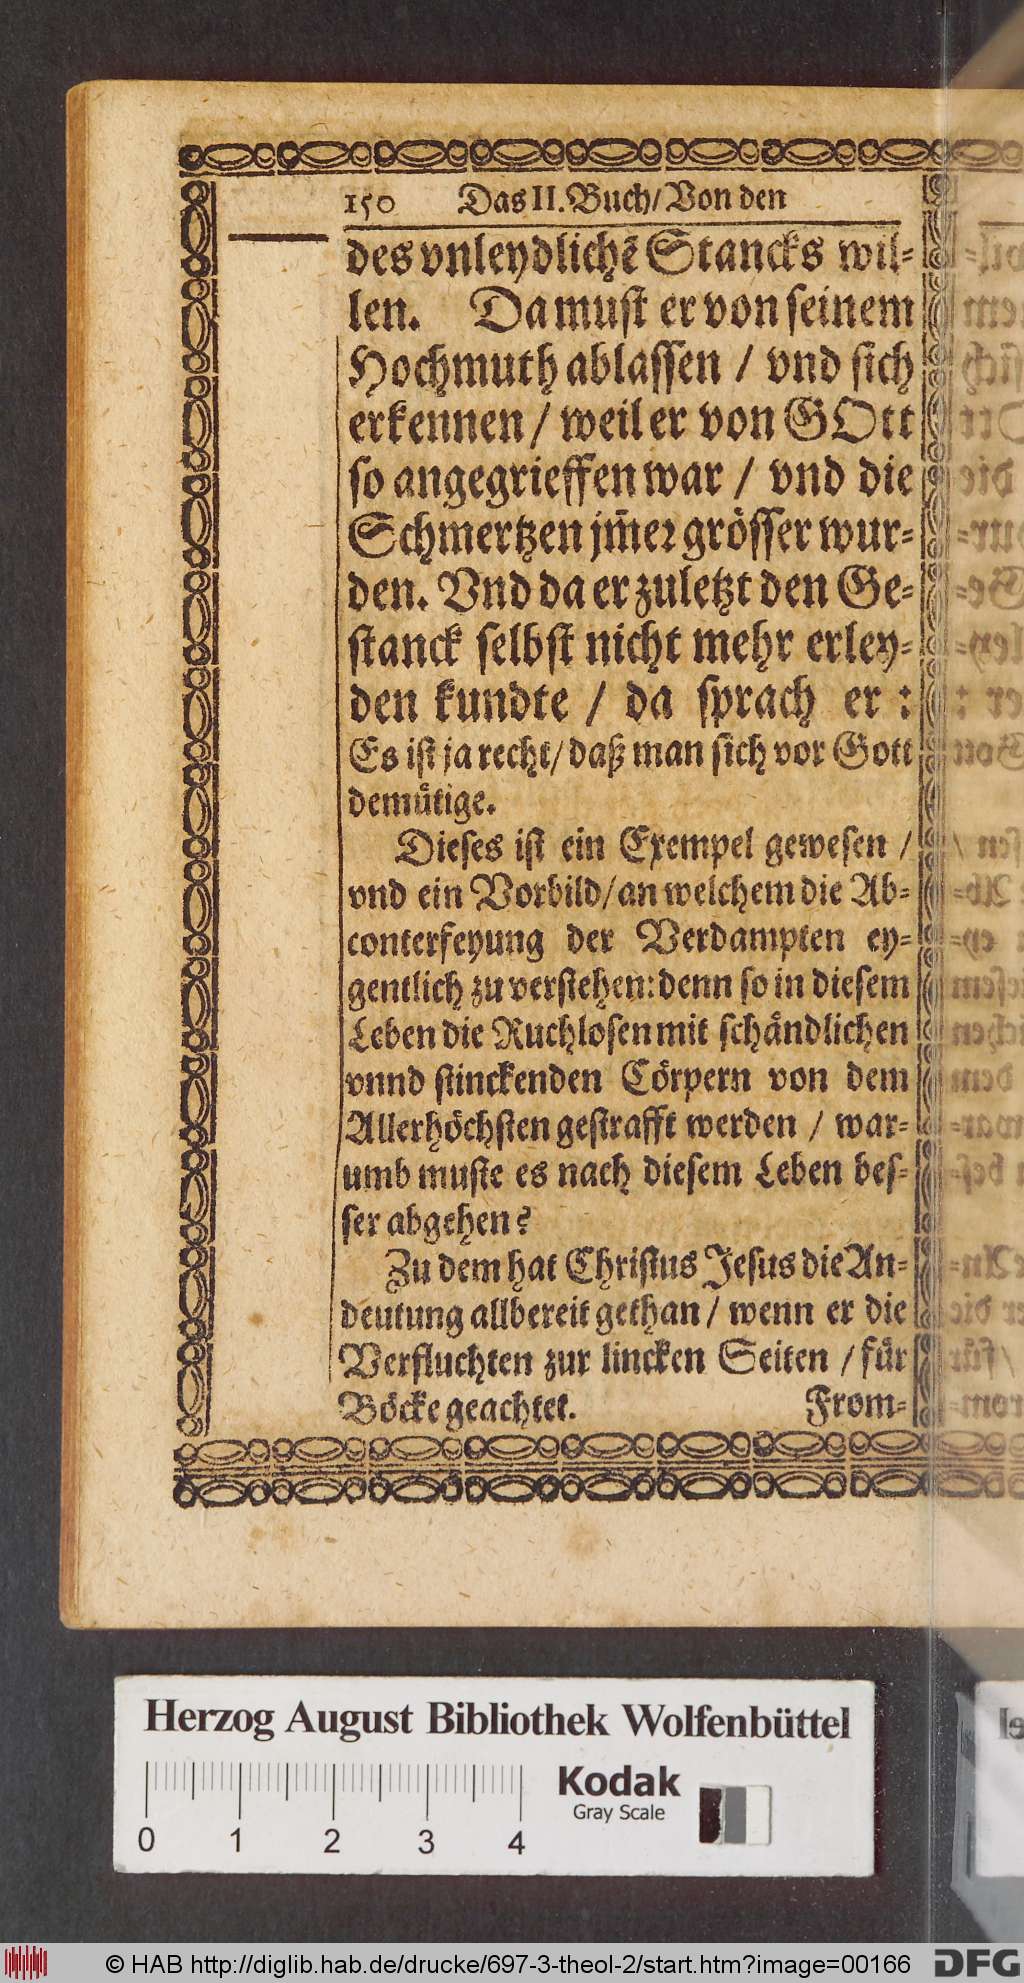 150 Das II. Buch/ Von den
des vnleydlichẽ Stancks wil-
len. Da must er von seinem
Hochmuth ablassen / vnd sich
erkennen / weil er von GOtt
so angegrieffen war / vnd die
Schmertzen jm̃er grösser wur-
den. Vnd da er zuletzt den Ge-
stanck selbst nicht mehr erley-
den kundte / da sprach er :
Es ist ja recht/ daß man sich vor Gott
demütige.
Dieses ist ein Exempel gewesen /
vnd ein Vorbild/ an welchem die Ab-
conterfeyung der Verdampten ey-
gentlich zu verstehen: denn so in diesem
Leben die Ruchlosen mit schändlichen
vnnd stinckenden Cörpern von dem
Allerhöchsten gestrafft werden / war-
umb muste es nach diesem Leben bes-
ser abgehen?
Zu dem hat Christus Jesus die An-
deutung allbereit gethan / wenn er die
Verfluchten zur lincken Seiten / für
Böcke geachtet. From-
Herzog August Bibliothek Wolfenbüttel
Kodak
Gray Scale
0 1 2 3 4
© HAB http://diglib.hab.de/drucke/697-3-theol-2/start.htm?image=00166
DFG